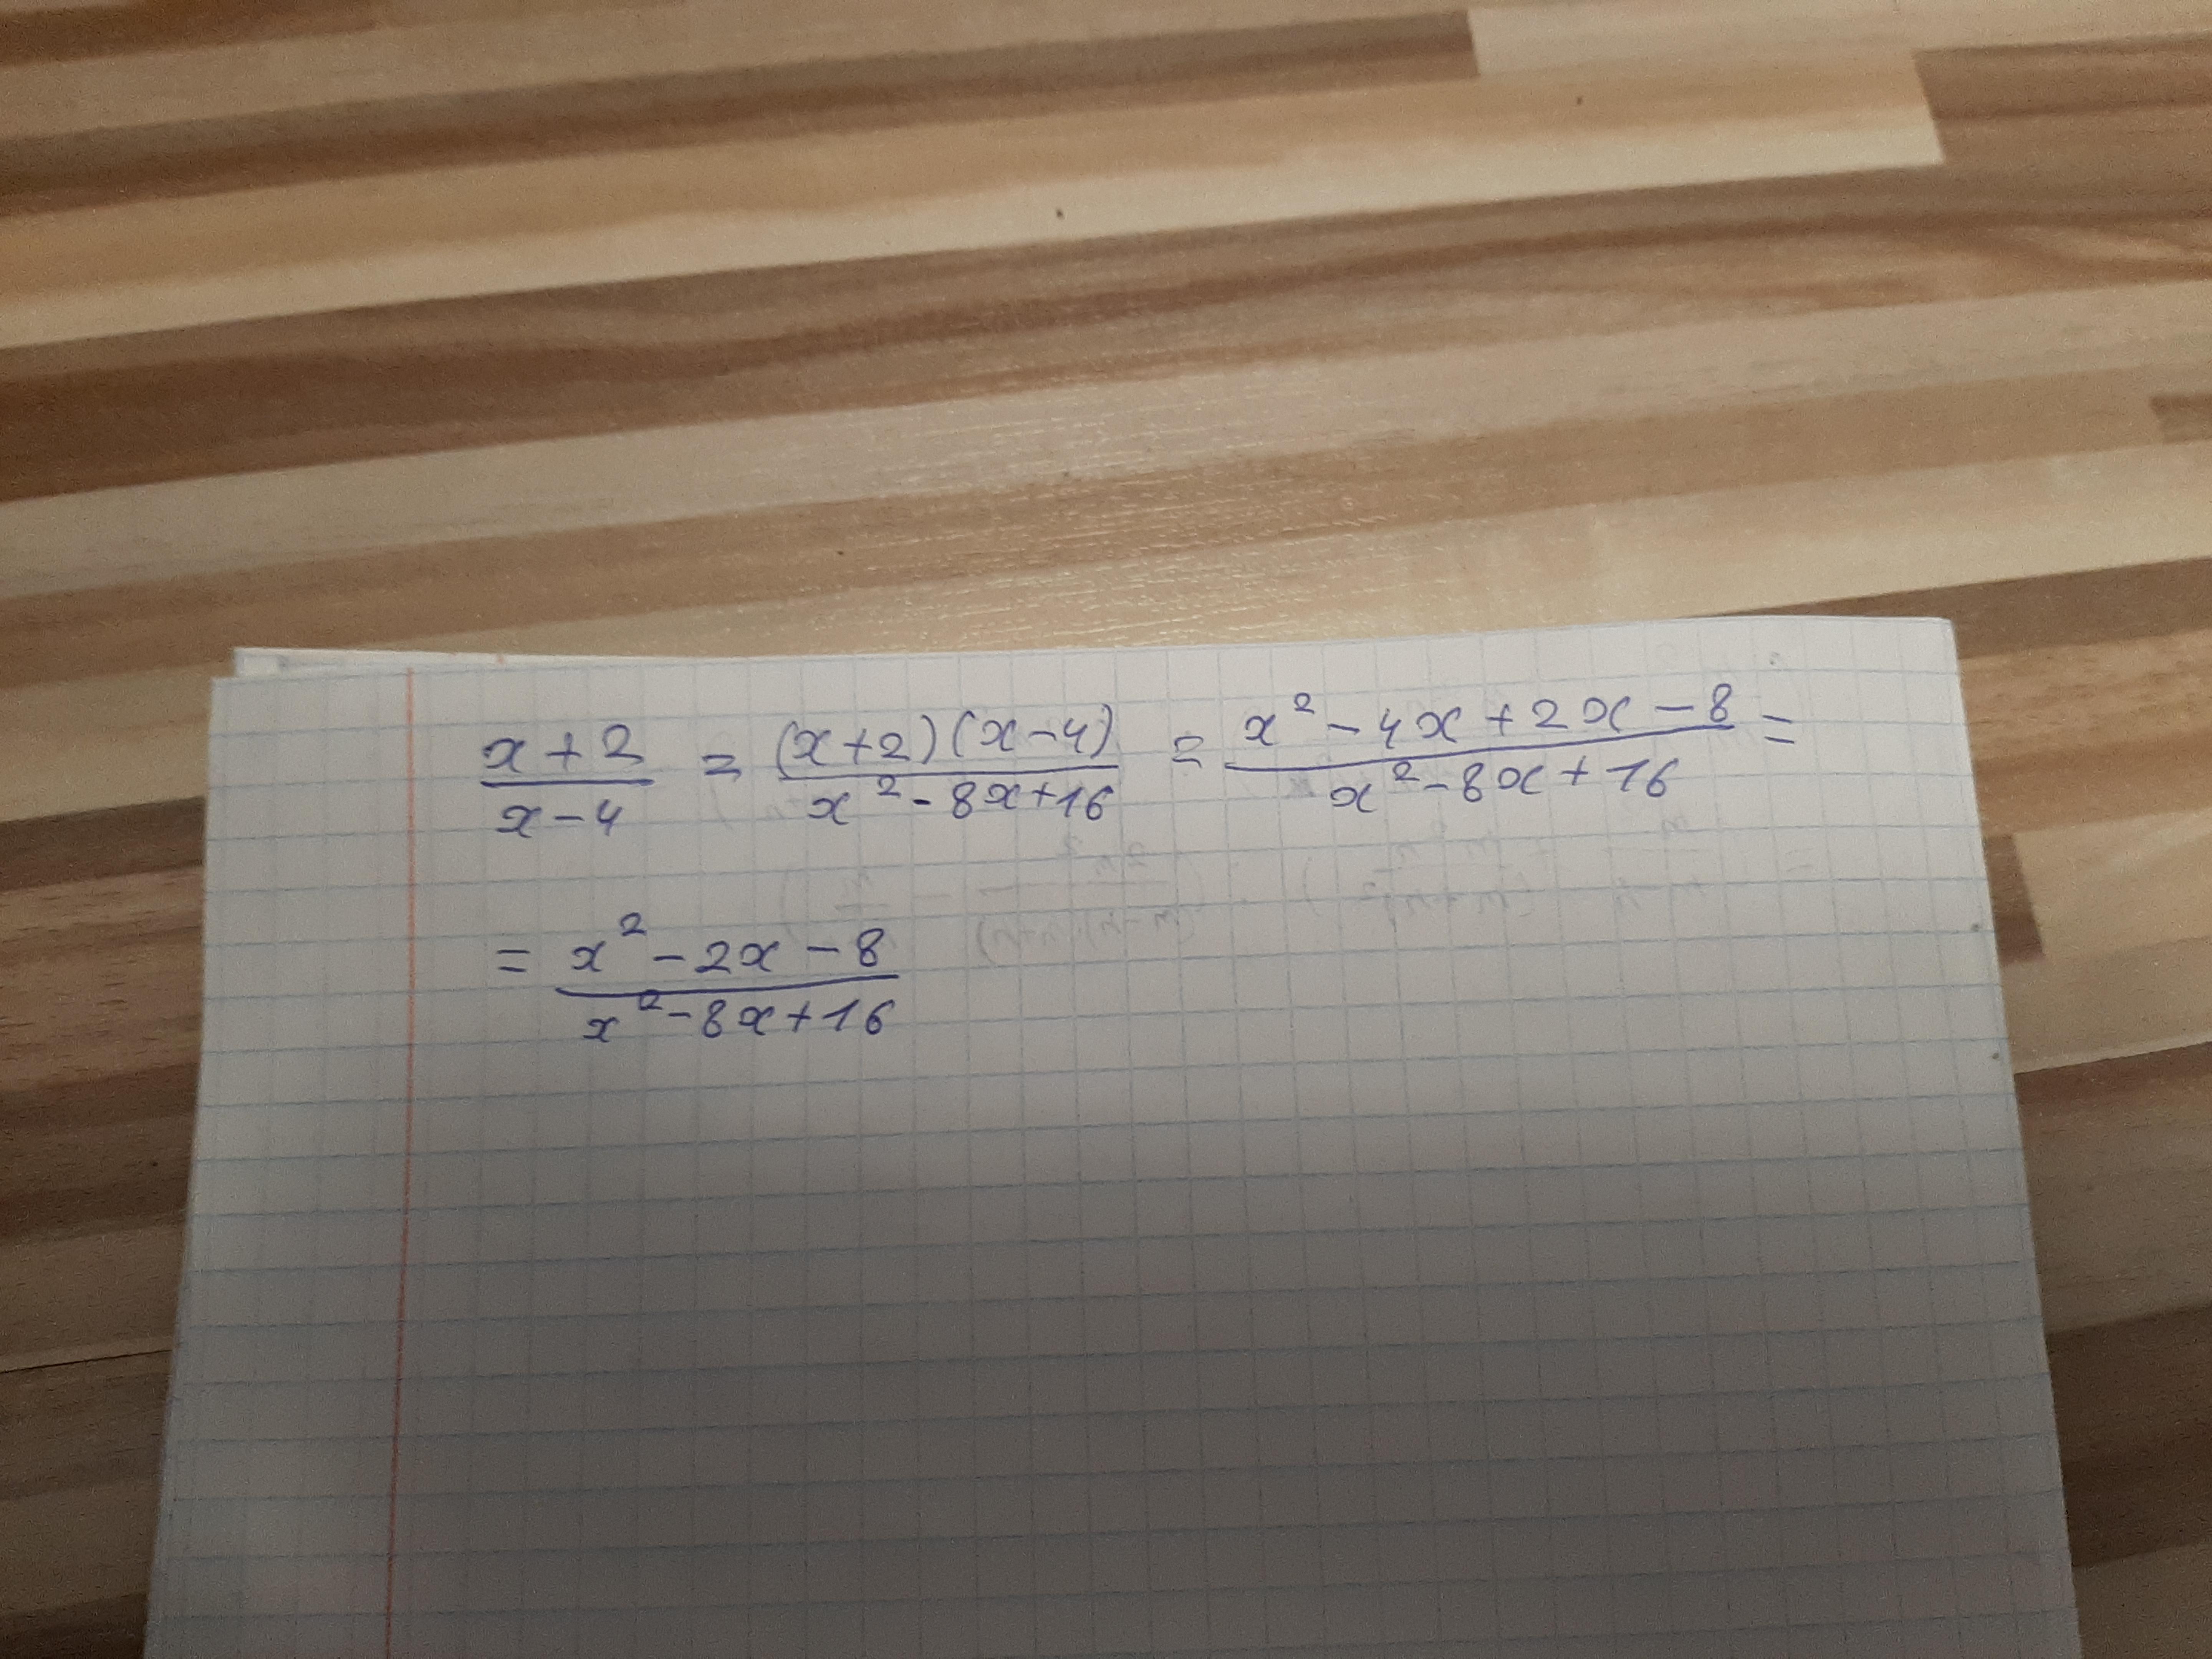 (x+2)/(x-4) = ((x+2)(x-4))/(x²-8x+16) = (x²-4x+2x-8)/(x²-8x+16) =
= (x²-2x-8)/(x²-8x+16)